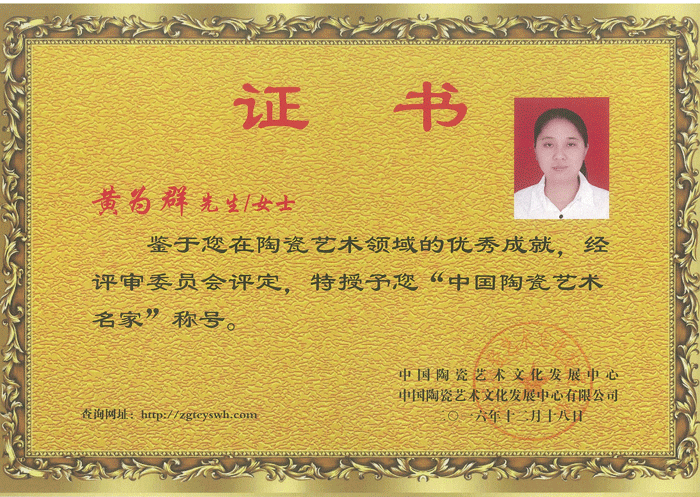 证 书
黄为群 先生/女士
鉴于您在陶瓷艺术领域的优秀成就，经
评审委员会评定，特授予您“中国陶瓷艺术
名家”称号。
中国陶瓷艺术文化发展中心
中国陶瓷艺术文化发展中心有限公司
查询网址：http://zgtcyswh.com
二〇一六年十二月十八日